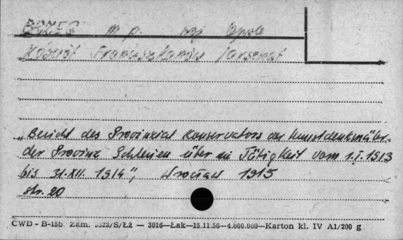 BRZEG m. p. woj. Opole
Kościół Franciszkanów, arsenał
„Bericht des Provinzial Konservators der Kunstdenkmäler
der Provinz Schlesien über die Tätigkeit vom 1.I.1913
bis 31.XII. 1914", Wrocław 1915
str. 20
CWD - B-15b Zam. /S/Łż — 3016—Łak—15.11.56—4.000.000—Karton kl. IV A1/200 g